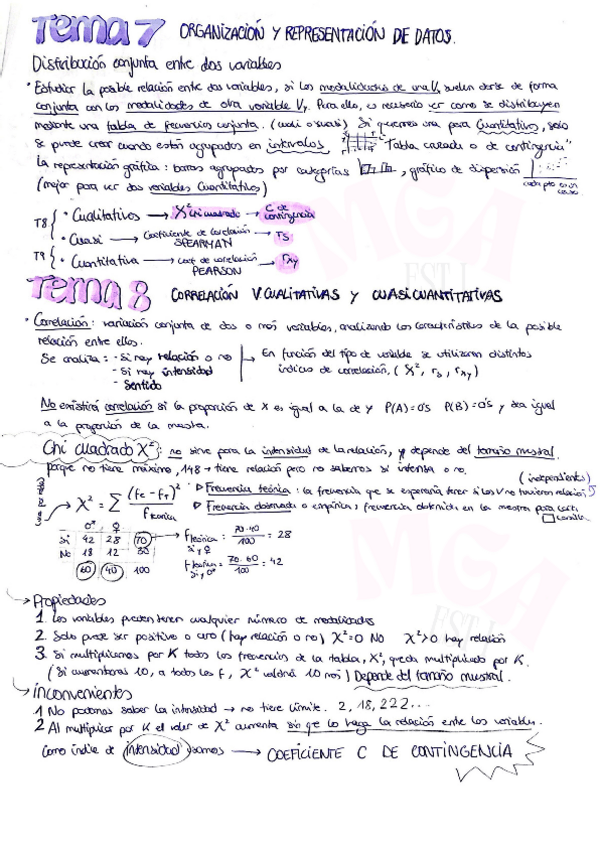 Tema 7 ORGANIZACIÓN Y REPRESENTACIÓN DE DATOS.
Distribución conjunta entre dos variables
· Estudiar la posible relación entre dos variables, si las modalidades de una V, suelen darse de forma
conjunta con las modalidades de otra variable Vy. Para ello, es necesario ver como se distribuyen
mediante una tabla de frecuencias conjunta. (cuali o cuasi) Si queremos una para cuantitativos, solo
se puede crear cuando están agrupados en intervalos "Tabla cruzada o de contingencia"
La representación gráfica: barras agrupadas por categorías, gráfico de dispersión
(mejor para ver dos variables cuantitativas) cada pto es un
T8 · Cualitativos → X² chi cuadrado → C de contingencia
· Cuasi → Coeficiente de correlación SPEARMAN → rs
T9 · Cuantitativa → coef de correlación PEARSON → rxy
Tema 8 CORRELACIÓN V. CUALITATIVAS Y CUASICUANTITATIVAS
· Correlación: variación conjunta de dos o más variables, analizando las características de la posible
relación entre ellos.
Se analiza: - Si hay relación o no
- Si hay intensidad
- sentido
→ En función del tipo de variable se utilizaran distintos
índices de correlación, (X², rs, rxy)
No existirá correlación si la proporción de X es igual a la de y P(A)=0'5 P(B)=0'5 y sea igual
a la proporción de la muestra.
Chi cuadrado X²: no sirve para la intensidad de la relación, y depende del tamaño muestral.
porque no tiene máximo, 148 → tiene relación pero no sabemos si intensa o no.
(independientes)
→ X² = Σ (fe - fT)² / f teórica
▷ Frecuencia teórica: la frecuencia que se esperaría tener si las V no tuvieron relación
▷ Frecuencia observada o empírica: frecuencia obtenida en la muestra para cada casilla
♂ ♀
Si 42 28 70
No 18 12 30
60 40 100
→ f teórica si, ♀ = 70·40 / 100 = 28
f teórica si, ♂ = 70·60 / 100 = 42
→ Propiedades
1. Las variables pueden tener cualquier número de modalidades
2. Solo puede ser positivo o cero (hay relación o no) X²=0 NO X²>0 hay relación
3. Si multiplicamos por K todas las frecuencias de la tabla, X², queda multiplicado por K.
(Si aumentaras 10, a todas las f, X² valdrá 10 más) Depende del tamaño muestral.
→ inconvenientes
1 No podemos saber la intensidad → no tiene límite. 2, 18, 222...
2 Al multiplicar por K el valor de X² aumenta sin que lo haga la relación entre las variables.
Como índice de intensidad usamos → COEFICIENTE C DE CONTINGENCIA
MGA
EST.1
MGA
EST.1